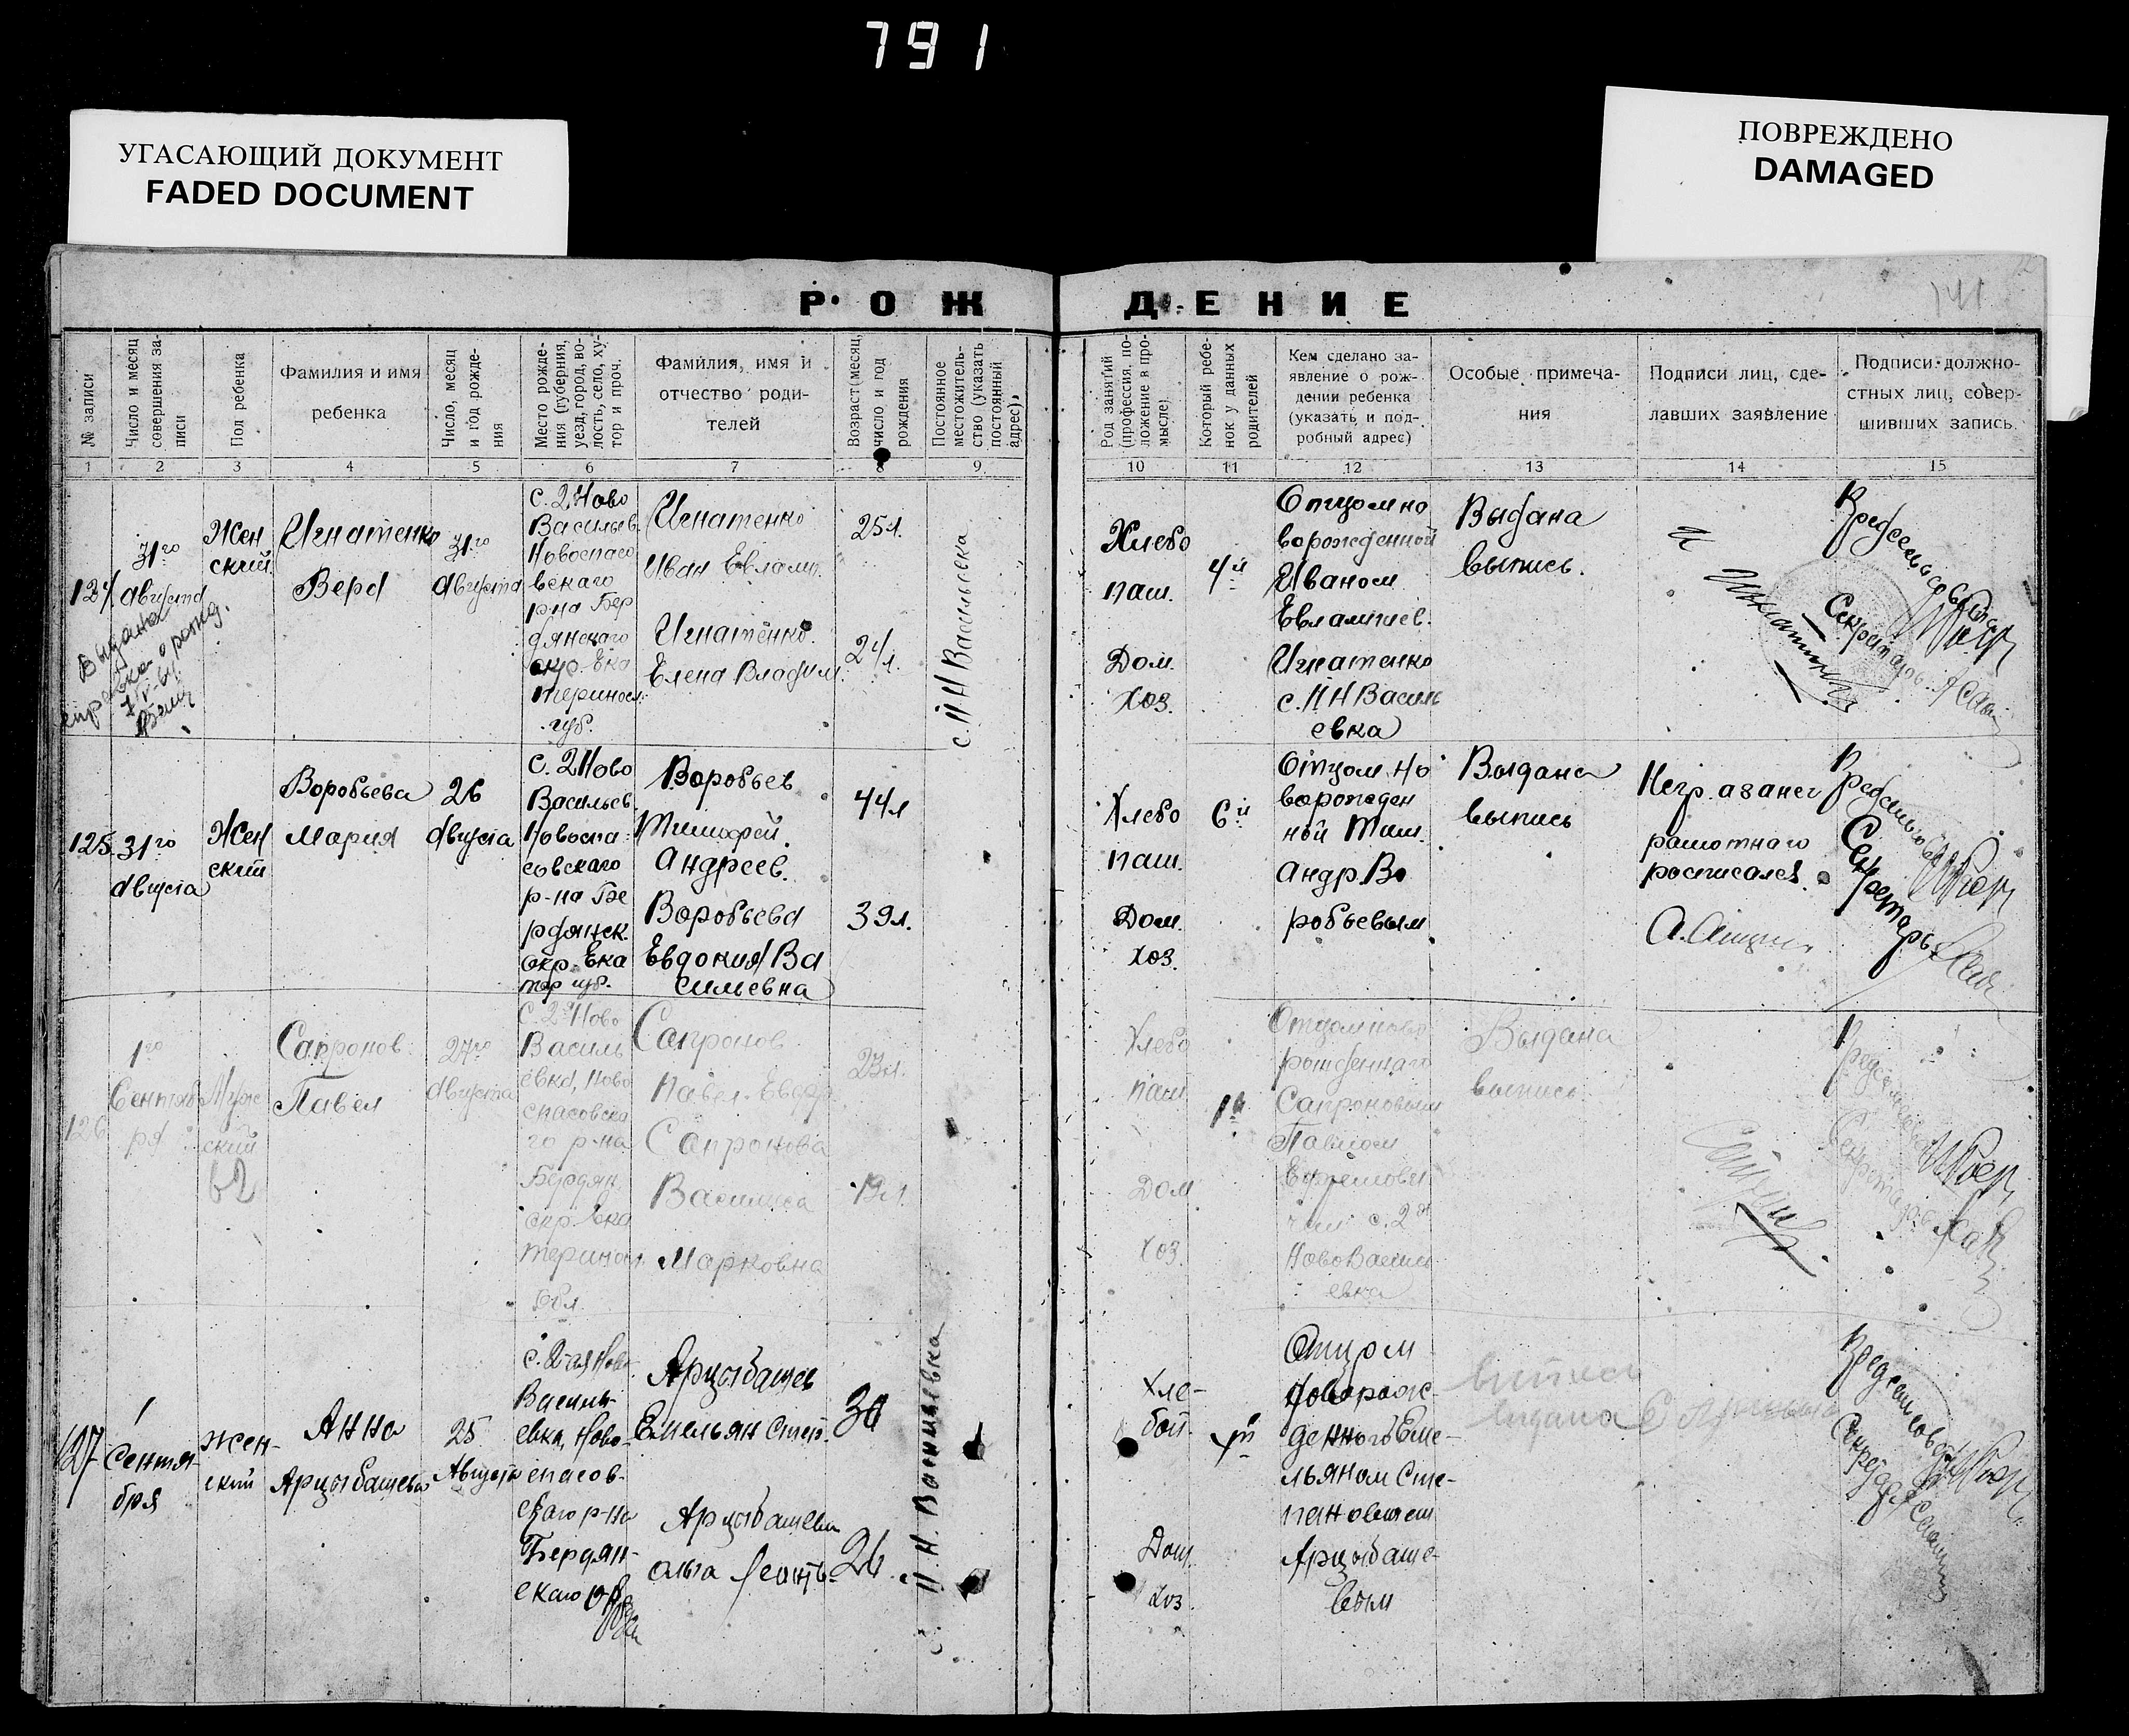 791
УГАСАЮЩИЙ ДОКУМЕНТ
FADED DOCUMENT
ПОВРЕЖДЕНО
DAMAGED
РОЖДЕНИЕ
141
№ записи
Число и месяц
совершения за-
писи
Пол ребенка
Фамилия и имя
ребенка
Число, месяц
и год рожде-
ния
Место рожде-
ния (губерния,
уезд, город, во-
лость, село, ху-
тор и проч.
Фамилия, имя и
отчество роди-
телей
Возраст (месяц,
число и год
рождения
Постоянное
местожитель-
ство (указать
постоянный
адрес)
Род занятий
(профессия. по-
ложение в про-
мысле)
Который ребе-
нок у данных
родителей
Кем сделано за-
явление о рож-
дении ребенка
(указать и под-
робный адрес)
Особые примеча-
ния
Подписи лиц, сде-
лавших заявление
Подписи должно-
стных лиц, совер-
шивших запись
1 2 3 4 5 6 7 8 9 10 11 12 13 14 15
124
31го
августа
Выдана
справка о рожд.
Жен
ский
Игнатенко
Вера
31го
августа
с. 2 Ново
Васильев.
Новоспасо
вскаго
р-на Бер
дянскаго
окр. Ека
теринос.
губ.
Игнатенко
Иван Евламп.
Игнатенко
Елена Владим.
25 л.
24 л.
с. II Н Васильевка
Хлебо
паш.
Дом.
хоз.
4й
Отцом но
ворожденной
Иваном
Евлампиев.
Игнатенко
с. II Н Василь
евка
Выдана
выпись.
И Игнатенко
Предсельсовета
Секретарь
125
31го
августа
Жен
ский
Воробьева
Мария
26
августа
с. 2 Ново
Васильев
Новоспа
совскаго
р-на Бе
рдянск.
окр. Ека
тер губ.
Воробьев
Тимофей
Андреев.
Воробьева
Евдокия Ва
сильевна
44 л
39 л.
Хлебо
паш.
Дом.
хоз.
6й
Отцом но
ворожден
ной Тим.
Андр. Во
робьевым
Выдана
выпись
Негр. а за нег
рамотного
росписался
Предсельсов
Секретарь
126
1го
Сентяб
ря
Муж
ский
62
Сапронов
Павел
27го
августа
с. 2 Ново
Василь
евка, Ново
спасовска
го р-на
Бердян.
окр. Ека
теринос.
Сапронов
Павел
Сапронова
Василиса
Марковна
23 л.
19 л.
Хлебо
паш
Дом
хоз.
1й
Отцом ново
рожденнаго
Сапроновым
Павлом
Ефремови
чем с. 2я
Ново Васил
евка
Выдана
выпись
Предсельсовета
Секретарь
127
1
Сентя-
бря
жен-
ский
Анна
Арцыбашева
25
Августа
с. 2-ая Ново-
Василь-
евка, Ново-
спасов-
скаго р-на
Бердян-
скаго
Арцыбашев
Емельян Степ.
Арцыбашева
Ольга Леонть-
30
26
с. II Н. Васильевка
Хле-
боп.
Дом.
хоз.
Отцом
новорож-
денного Еме-
льяном Сте-
пановичем
Арцыбаше-
вым
выпись
выдана
Предсельсовета
Секретарь